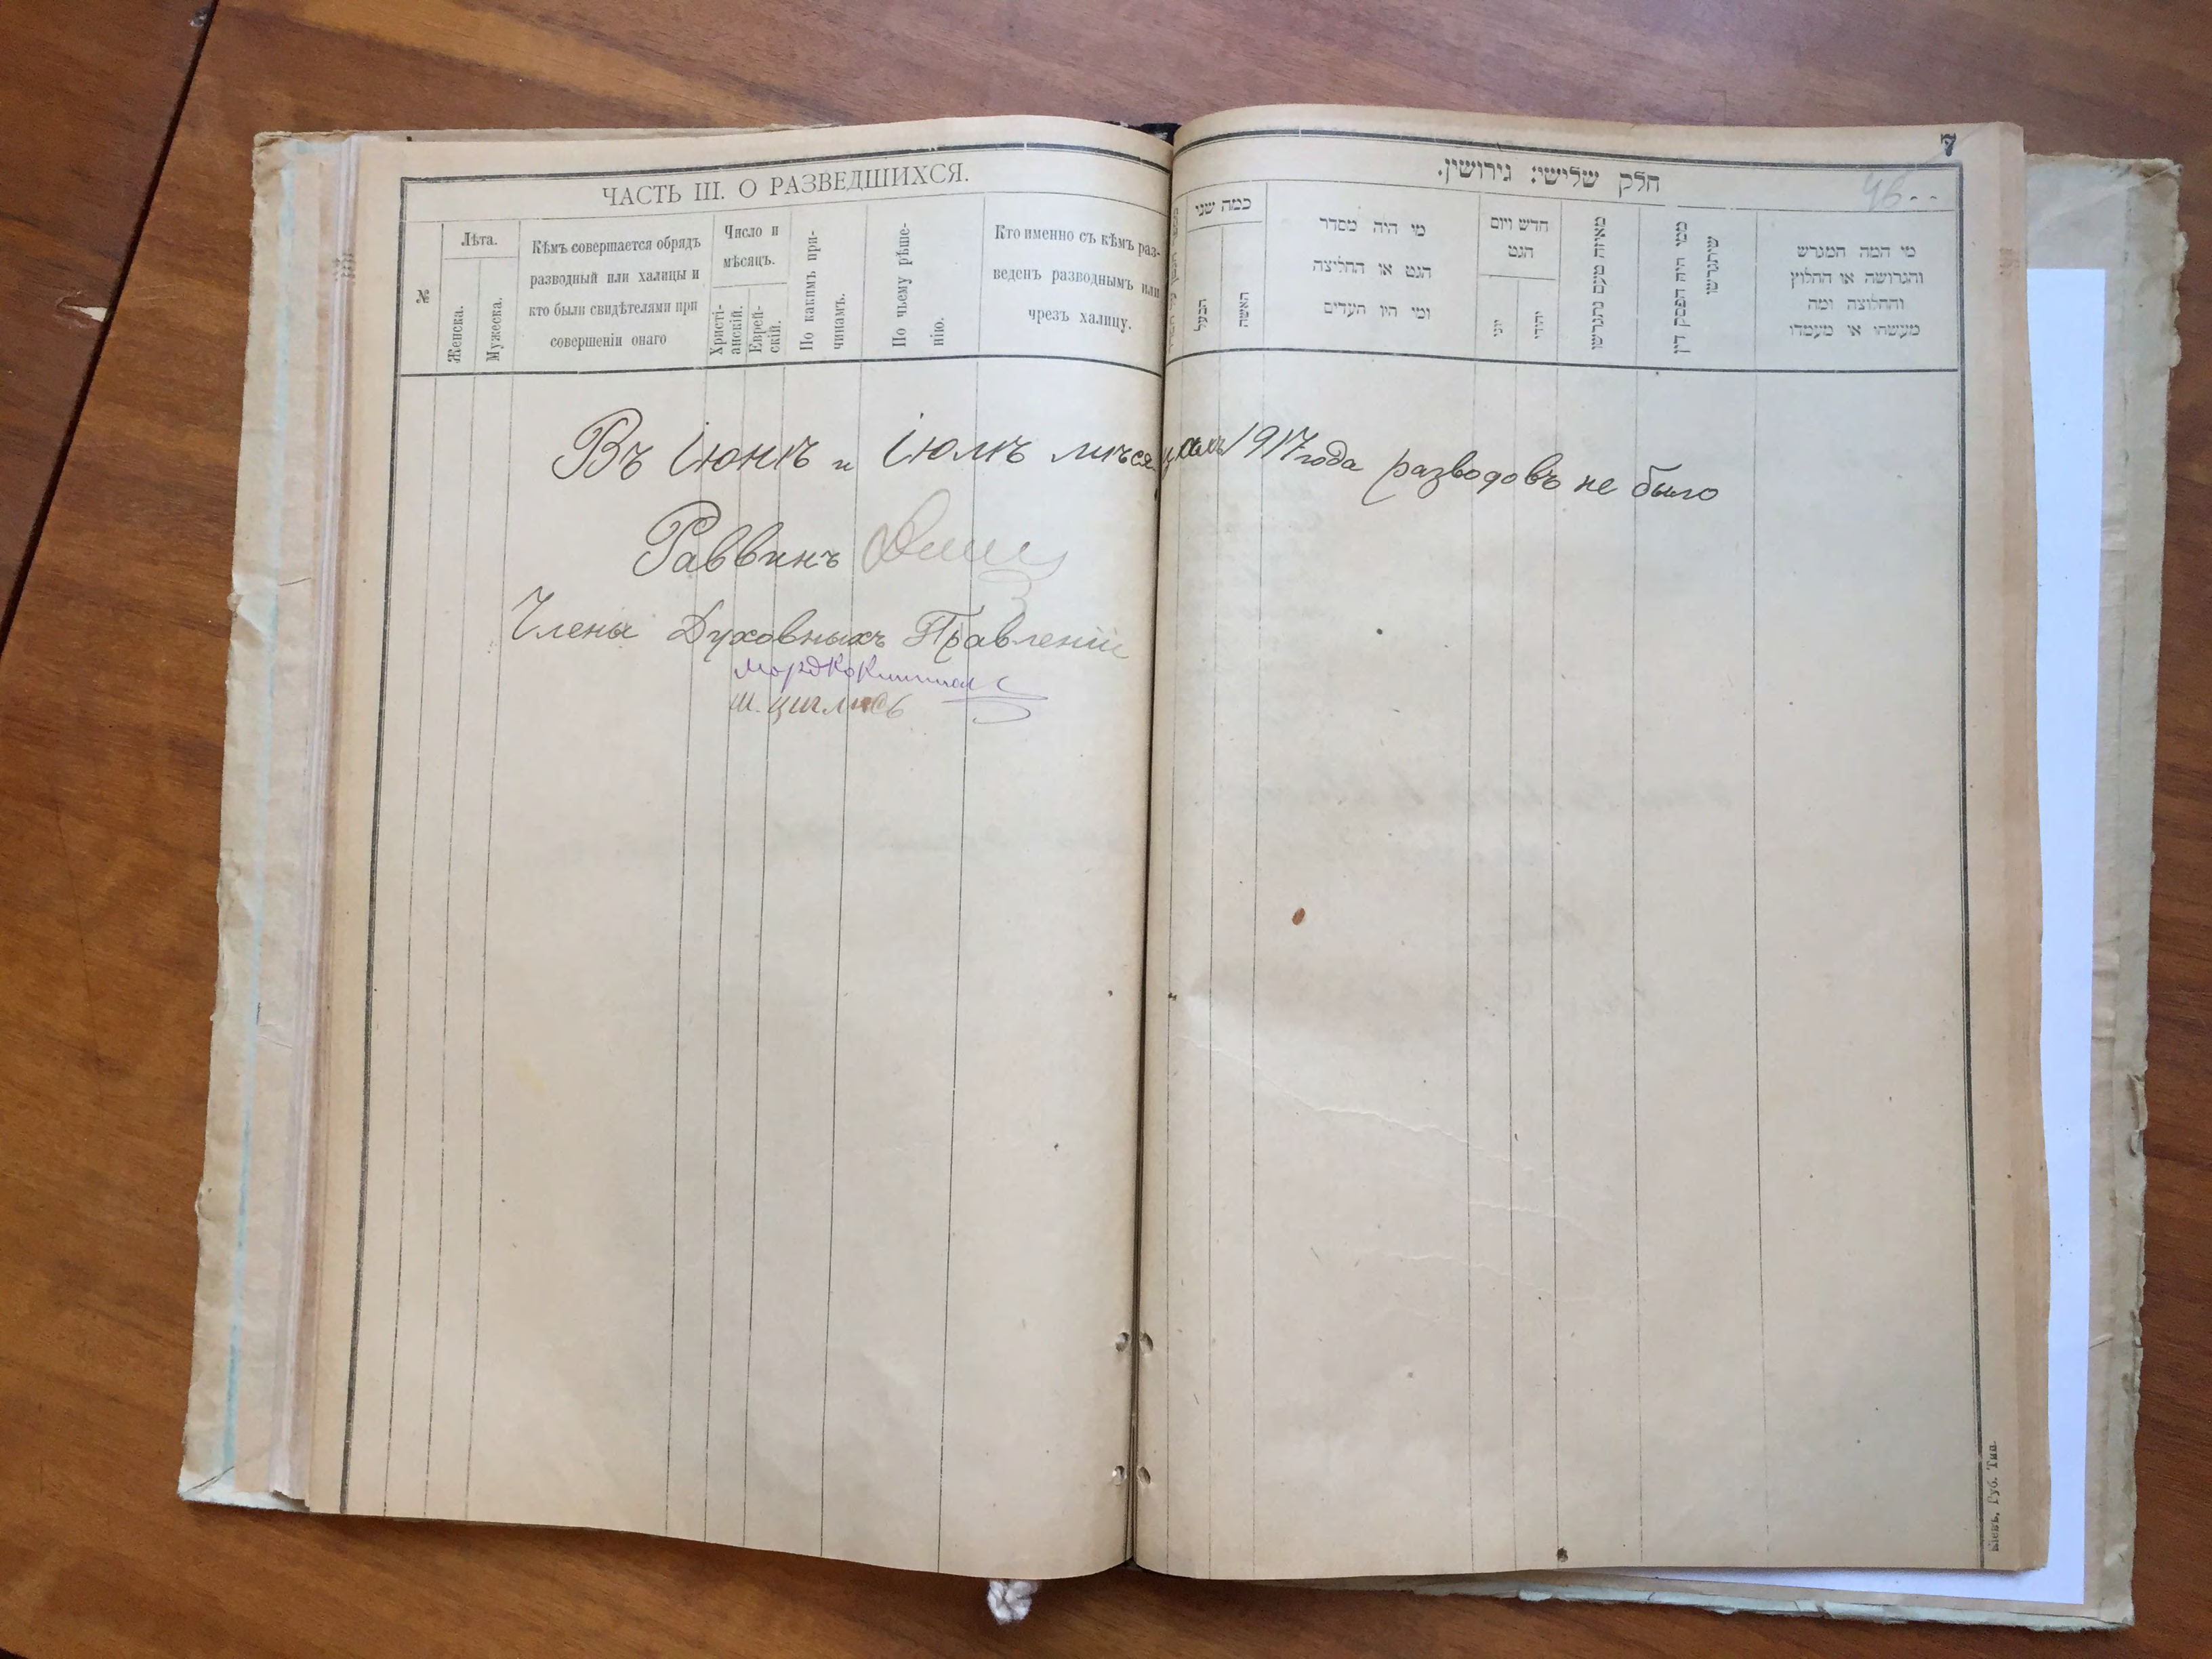 ЧАСТЬ III. О РАЗВЕДШИХСЯ.
№
Лѣта.
Женска.
Мужеска.
Кѣмъ совершается обрядъ
разводный или халицы и
кто были свидѣтелями при
совершеніи онаго
Число и
мѣсяцъ.
Христі-
анскій.
Еврей-
скій.
По какимъ при-
чинамъ.
По чьему рѣше-
нію.
Кто именно съ кѣмъ раз-
веденъ разводнымъ или
чрезъ халицу.
7
חלק שלישי: גירושין.
כמה שני
הבעל
האשה
מי היה מסדר
הגט או החליצה
ומי היו העדים
חדש ויום
הגט
יוני
יהודי
מאיזה טעם נתגרשו
ממי היה הפסק דין
שיתגרשו
מי המה המגרש
והגרושה או החלוץ
והחלוצה ומה
מעשהו או מעמדו
Въ Іюнѣ и Іюлѣ мѣсяцахъ 1917 года разводовъ не было
Раввинъ
Члены Духовныхъ Правленій
Мордко
Ш.
Кіевъ, Руб. Тип.